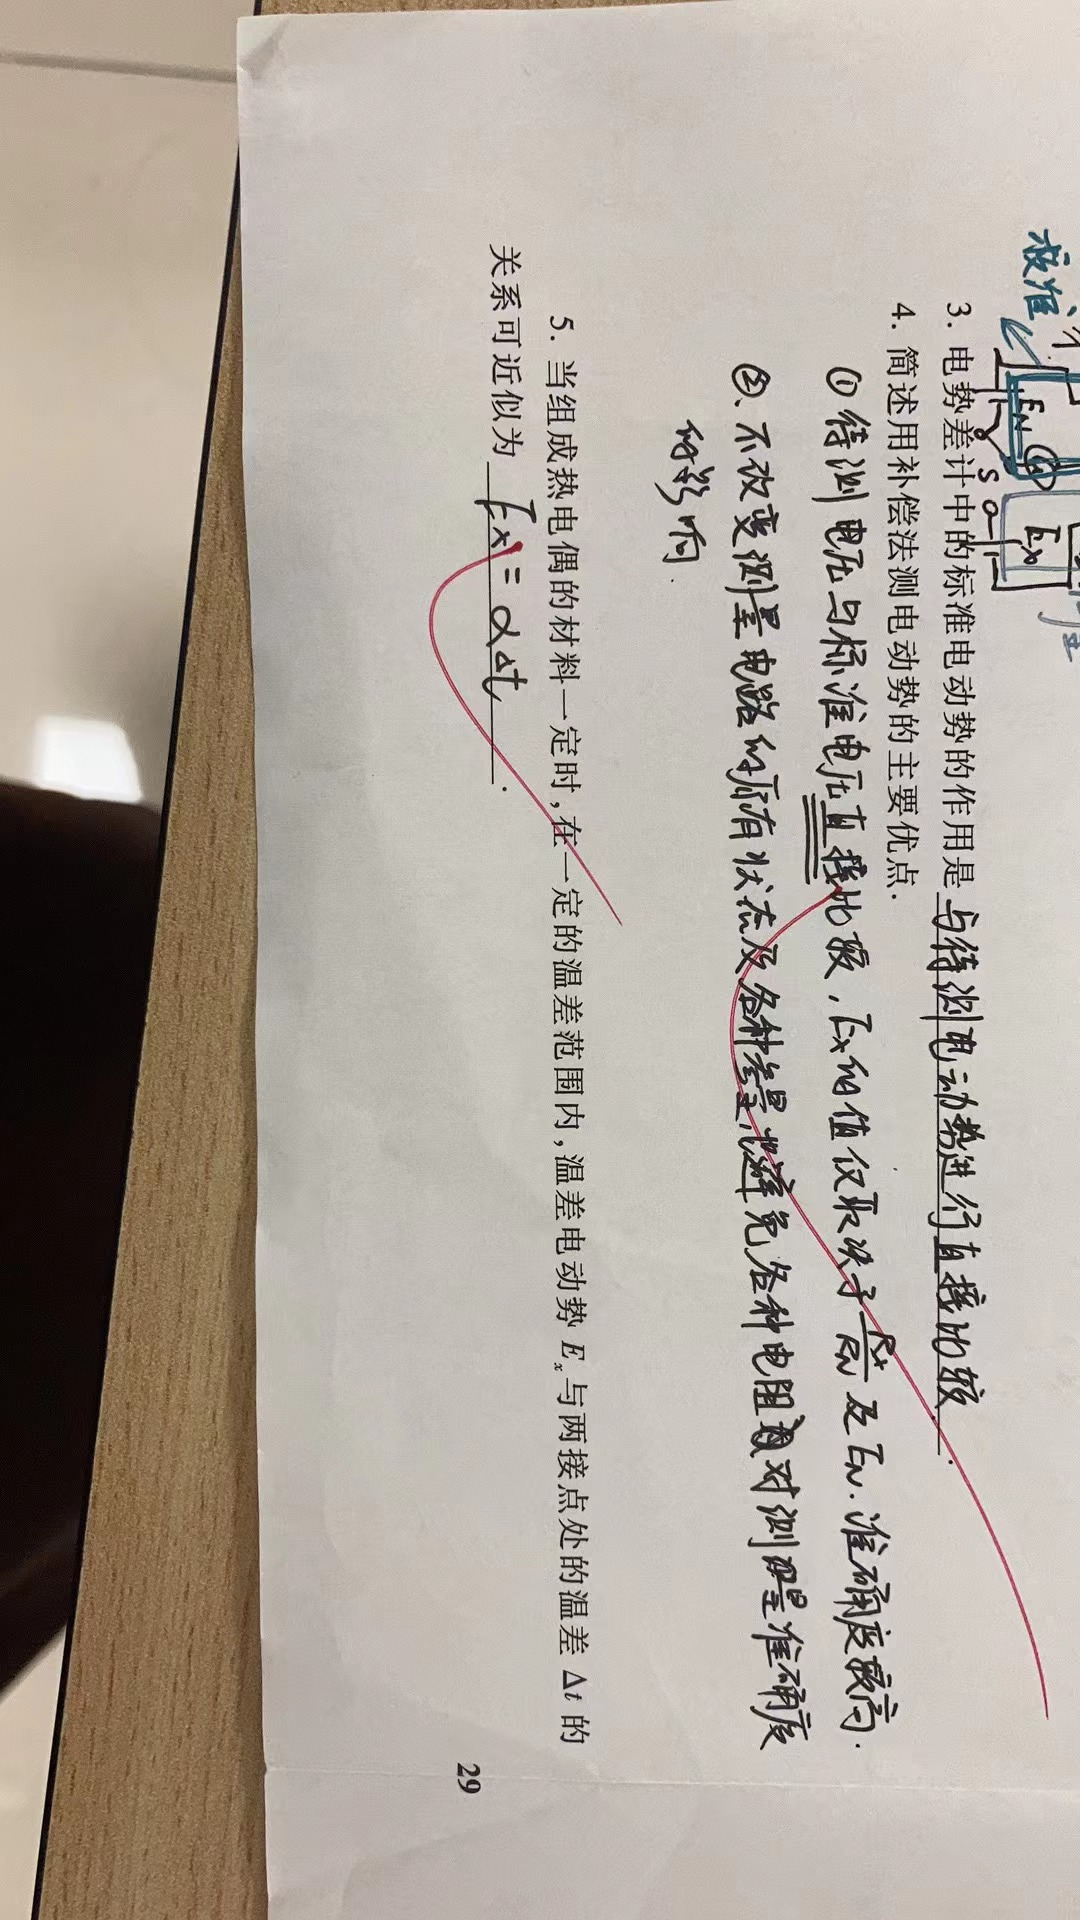 校准
E_N
G
S
Ex
3. 电势差计中的标准电动势的作用是 与待测电动势进行直接比较.
4. 简述用补偿法测电动势的主要优点.
① 待测电压与标准电压直接比较, Ex的值仅取决于 Rx/RN 及 EN. 准确度较高.
②、不改变测量电路的原有状态及各种参量,避免各种电阻对测量准确度
的影响.
5. 当组成热电偶的材料一定时,在一定的温差范围内,温差电动势 Ex 与两接点处的温差 Δt 的
关系可近似为 Ex = αΔt.
29